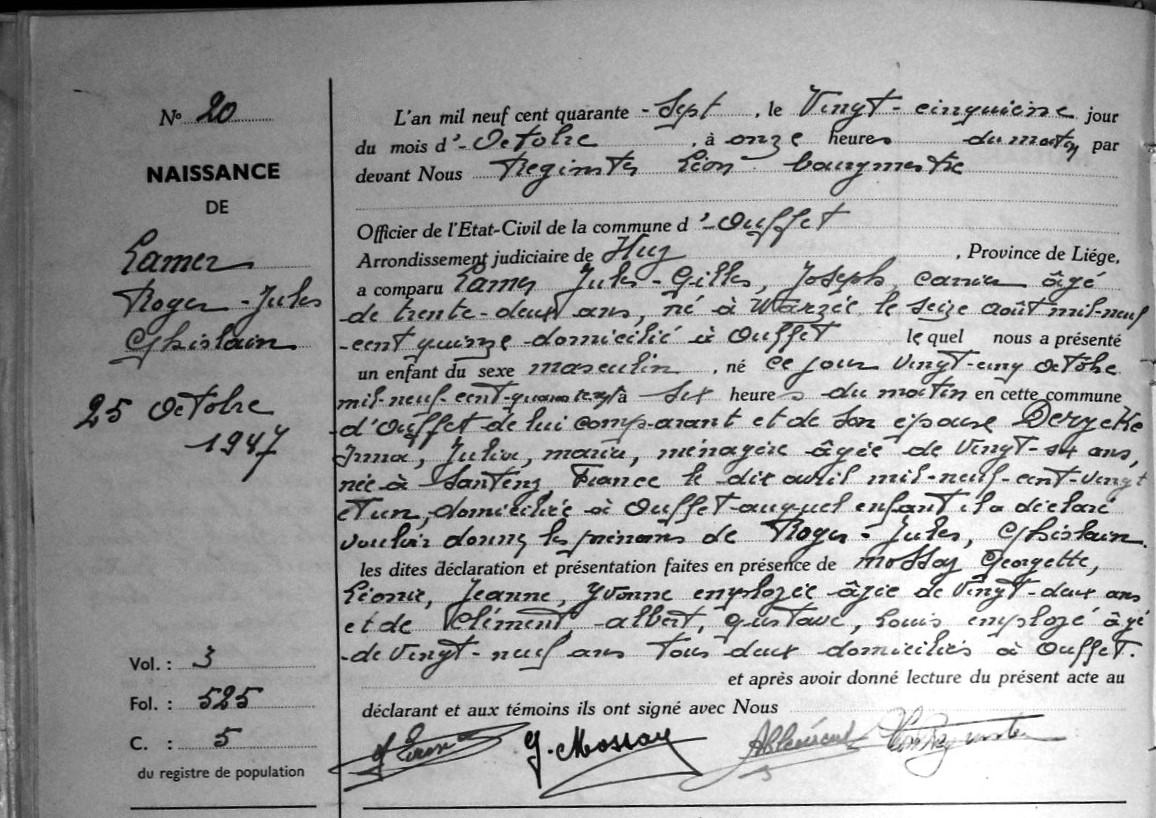 N° 20
NAISSANCE
DE
Lamer
Roger - Jules
Ghislain
25 Octobre
1947
Vol. : 3
Fol. : 525
C. : 5
du registre de population
L'an mil neuf cent quarante - Sept , le Vingt - cinquième jour
du mois d'- Octobre , à onze heures du matin par
devant Nous Reginster Léon bourgmestre
Officier de l'Etat-Civil de la commune d'- Ouffet
Arrondissement judiciaire de Huy , Province de Liége,
a comparu Lamer Jules - Gilles, Joseph, âgé
de trente - deux ans, né à Warzée le seize août mil-neuf
-cent quinze domicilié à Ouffet le quel nous a présenté
un enfant du sexe masculin , né ce jour vingt-cinq octobre
mil-neuf-cent-quarante sept à six heures du matin en cette commune
d'Ouffet de lui comparant et de son épouse Derycke
Irma, Julia, maria, ménagère âgée de Vingt-six ans,
née à Santes France le dix avril mil-neuf-cent-vingt
et un, domiciliée à Ouffet auquel enfant il a déclaré
vouloir donner les prénoms de Roger - Jules, Ghislain.
les dites déclaration et présentation faites en présence de Mossay Georgette,
Léonie, Jeanne, Yvonne employée âgée de Vingt-deux ans
et de Clément albert, gustave, Louis employé âgé
de Vingt - neuf ans tous deux domiciliés à Ouffet.
et après avoir donné lecture du présent acte au
déclarant et aux témoins ils ont signé avec Nous
G. Mossay